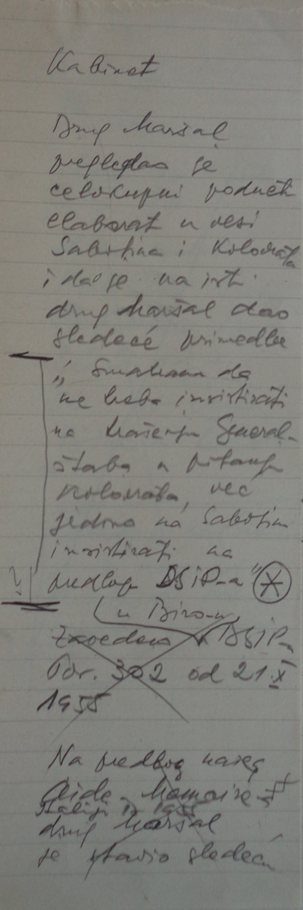 Kabinet
Drug Maršal
pregledao je
celokupni podneti
elaborat u vezi
Sabotina i Kolovrata
i dao je na isti
drug Maršal dao
sledeće primedbe
„ Smatram da
ne treba insistirati
na traženju General-
štaba u pitanju
Kolovrata, već
jedino na Sabotin
insistirati na
predlogu DSIP-a"
u Birou
Zavedeno DSIP-a
Pov. 302 od 21.X
1955
Na predlog našeg
Aide-Mémoire-a
Italiji 1955
drug Maršal
je stavio sledeću